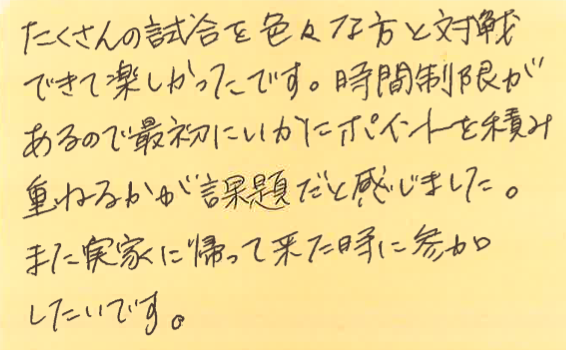 たくさんの試合を色々な方と対戦
できて楽しかったです。時間制限が
あるので最初にいかにポイントを積み
重ねるかが課題だと感じました。
また実家に帰って来た時に参加
したいです。